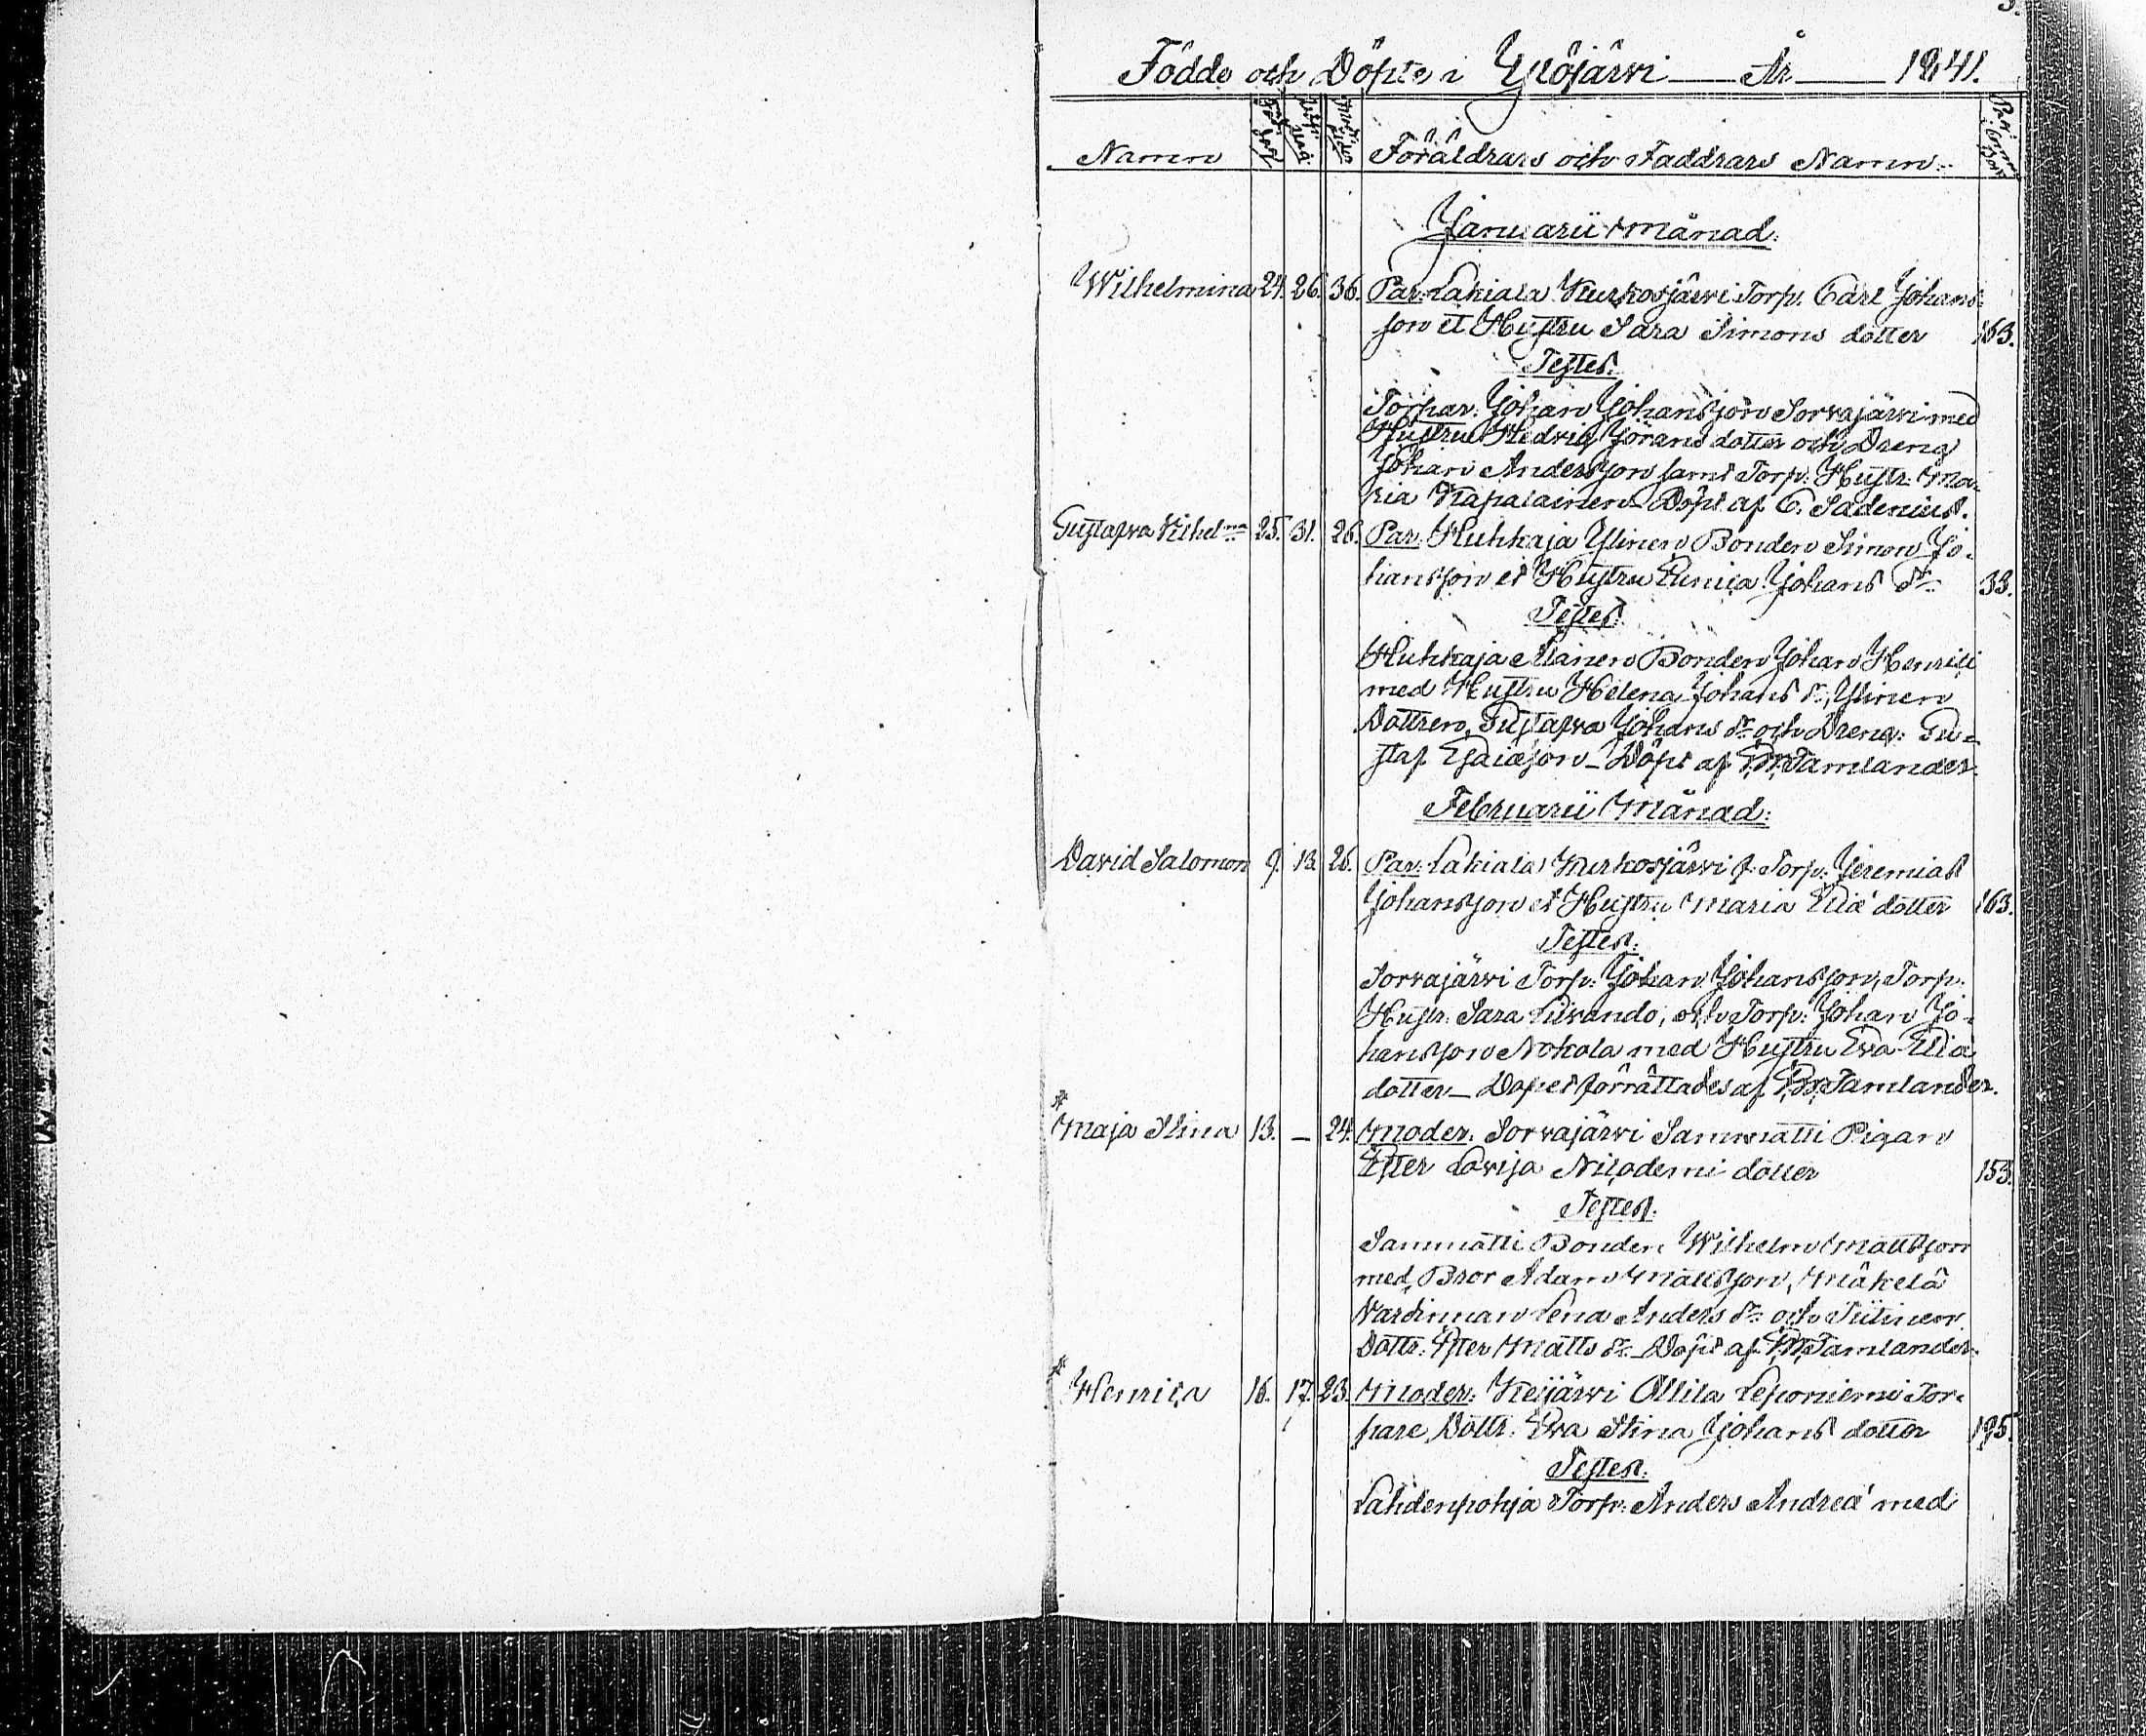 3.
Födde och Döpte i Ylöjärvi — År — 1841.
Namn Föd: dag Döp: dag Mod: ålder Föräldrars och Faddrars Namn: Pag:
Januarii Månad:
Wilhelmina 24. 26. 36. Par: Lakiala Kurkosjärvi Torp. Carl Johans-
son et Hustru Sara Simons dotter 163.
Testes:
Torpar: Johan Johansson Sorvajärvi med
Hustru Hedvig Jörans dotter och Dreng
Johan Andersson samt Torp: Hustr: Ma-
ria Kapalainen Döpt af C. Sadenius.
Gustafva Vilhel:na 25. 31. 26. Par: Huhkaja Ylinen Bonden Simon Jo-
hansson et Hustru Eunica Johans dr 33.
Testes:
Huhkaja Alainen Bonden Johan Henrici
med Hustru Helena Johans dr, Ylinen
Dottren, Gustafva Johans dr och Dreng: Gu-
staf Esaiæson — Döpt af Pr. Tamlander.
Februarii Månad:
David Salomon 9. 13. 26. Par: Lakiala Kurkosjärvi f. Torp: Jeremias
Johansson et Hustru Maria Eliæ dotter 163.
Testes:
Sorvajärvi Torp: Johan Johansson, Torp:
Hustr: Sara Liivando, och Torp: Johan Jo-
hansson Nokola med Hustru Eva Eliæ
dotter — Dopet förrättades af Pr. Tamlander.
*
Maja Stina 13. — 24. Moder: Sorvajärvi Sammatti Pigan
Ester Lovisa Nicodemi dotter 153.
Testes:
Sammatti Bonden Wilhelm Mattsson
med Bror Adam Mattsson, Mäkelä
Värdinnan Lena Anders dr och Tiitinen
Dottr: Ester Matts dr Döpt af Pr. Tamlander.
*
Henrica 16. 17. 23. Moder: Keijärvi Ollila Leponiemi Tor-
pare Dottr: Eva Stina Johans dotter 195.
Testes:
Lahdenpohja Torp: Anders Andreæ med